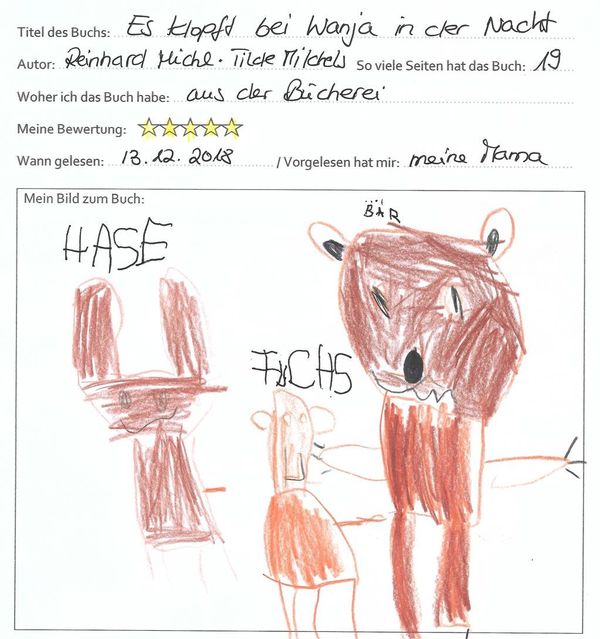 Titel des Buchs: Es klopft bei Wanja in der Nacht
Autor: Reinhard Michl - Tilde Michels So viele Seiten hat das Buch: 19
Woher ich das Buch habe: aus der Bücherei
Meine Bewertung:
Wann gelesen: 13.12.2018 / Vorgelesen hat mir: meine Mama
Mein Bild zum Buch:
BÄR
HASE
FUCHS